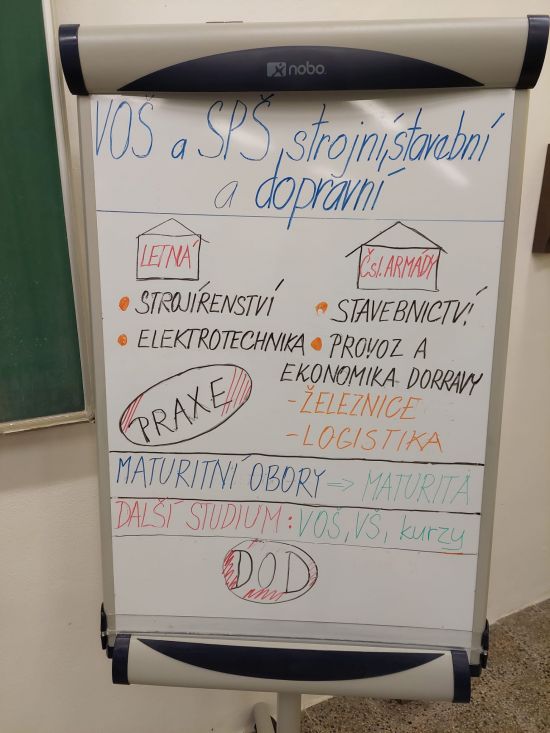 nobo
VOŠ a SPŠ, strojní, stavební
a dopravní
LETNÁ
Čsl. ARMÁDY
• STROJÍRENSTVÍ
• STAVEBNICTVÍ
• ELEKTROTECHNIKA
• PROVOZ A
EKONOMIKA DORRAVY
PRAXE
- ŽELEZNICE
- LOGISTIKA
MATURITNÍ OBORY => MATURITA
DALŠÍ STUDIUM: VOŠ, VŠ, kurzy
DOD